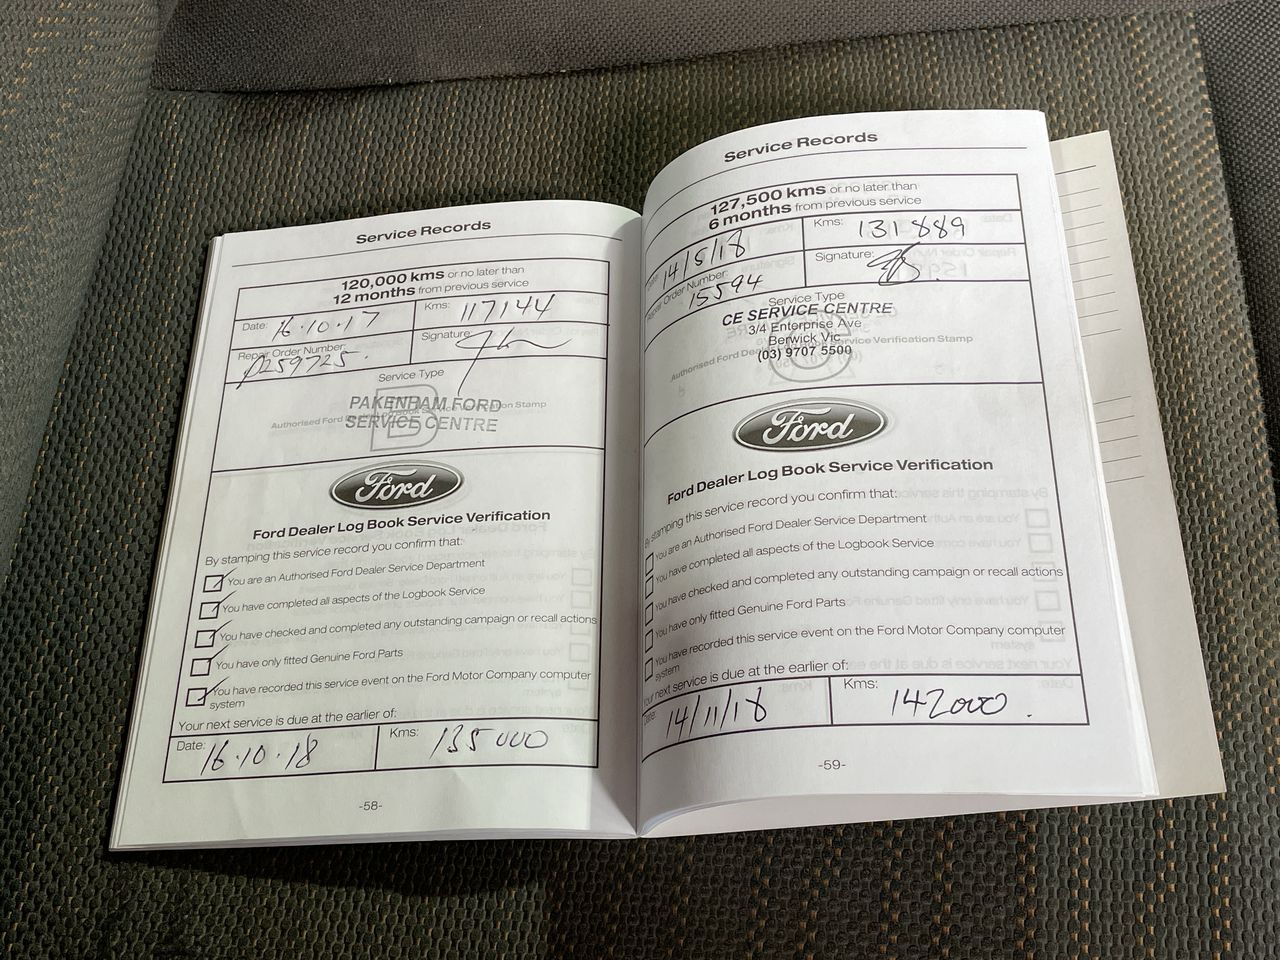 Service Records
120,000 kms or no later than
12 months from previous service
Date: 16·10·17
Kms: 117144
Repair Order Number: P259725.
Signature:
Service Type
B
Authorised Ford Dealer Logbook Service Verification Stamp
PAKENHAM FORD
SERVICE CENTRE
Ford
Ford Dealer Log Book Service Verification
By stamping this service record you confirm that:
You are an Authorised Ford Dealer Service Department
You have completed all aspects of the Logbook Service
You have checked and completed any outstanding campaign or recall actions
You have only fitted Genuine Ford Parts
You have recorded this service event on the Ford Motor Company computer
system
Your next service is due at the earlier of:
Date: 16·10·18
Kms: 135000
-58-
Service Records
127,500 kms or no later than
6 months from previous service
14/5/18
Kms: 131889
Repair Order Number: 15594
Signature:
Service Type
CE SERVICE CENTRE
3/4 Enterprise Ave
Berwick Vic
(03) 9707 5500
Authorised Ford Dealer Service Verification Stamp
Ford
Ford Dealer Log Book Service Verification
By stamping this service record you confirm that:
You are an Authorised Ford Dealer Service Department
You have completed all aspects of the Logbook Service
You have checked and completed any outstanding campaign or recall actions
You have only fitted Genuine Ford Parts
You have recorded this service event on the Ford Motor Company computer
system
Your next service is due at the earlier of:
Date: 14/11/18
Kms: 142000.
-59-